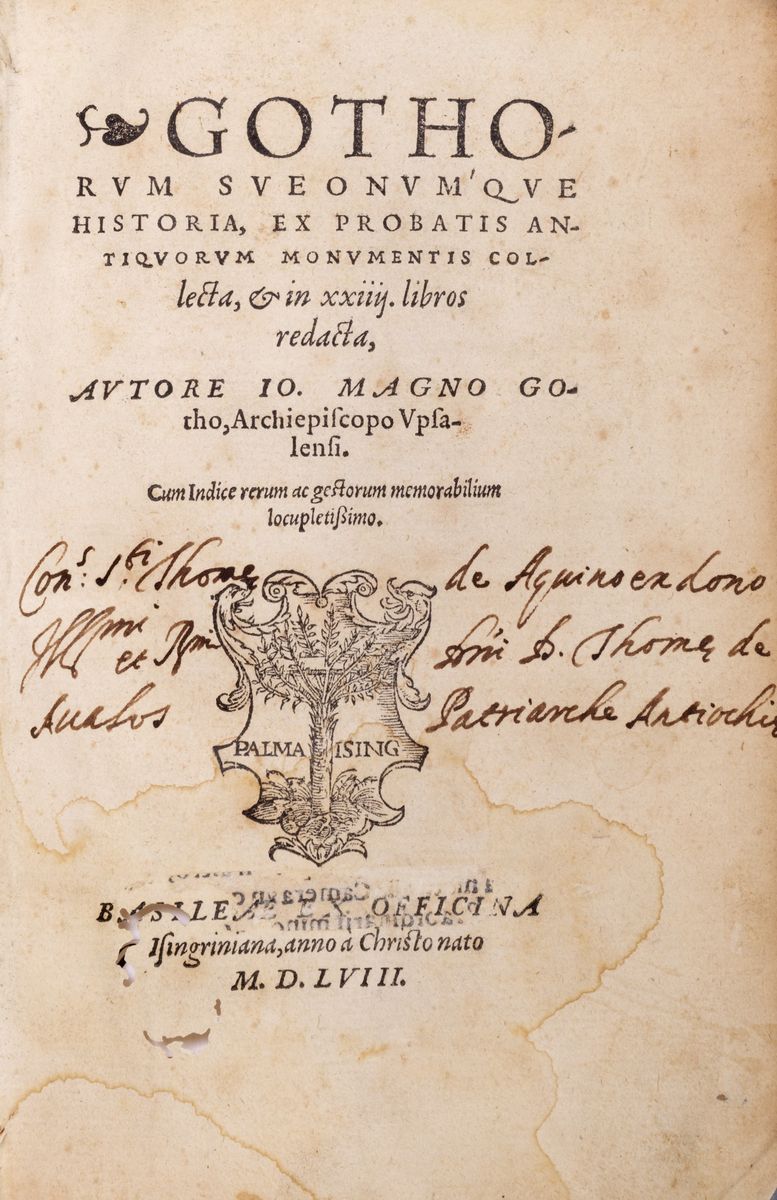 GOTHO-
RVM SVEONVM'QVE
HISTORIA, EX PROBATIS AN-
TIQVORVM MONVMENTIS COL-
lecta, & in xxiiij. libros
redacta,
AVTORE IO. MAGNO GO-
tho, Archiepiſcopo Vpſa-
lenſi.
Cum Indice rerum ac geſtorum memorabilium
locupletißimo.
Con.s S.ti Thomę de Aquino ex dono
Ill.mi et R.mi Dñi D. Thomę de
Aualos Patriarche Antiochię
PALMA ISING
BASILEAE EX OFFICINA
Iſingriniana, anno a Chriſto nato
M. D. LVIII.